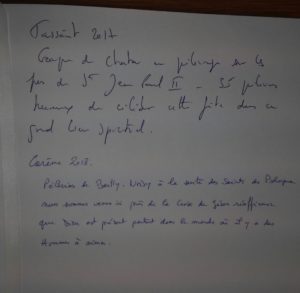 Toussaint 2017
Groupe de Chatou en pèlerinage sur les
pas de St Jean Paul II - 35 pèlerins
heureux de célébrer cette fête dans ce
grand lieu spirituel.
Carême 2018.
Pèlerins de Noisy à la suite des Saints de Pologne
nous sommes venus ici près de la Croix de
que Dieu est présent partout dans le monde où il y a des
hommes à aimer.